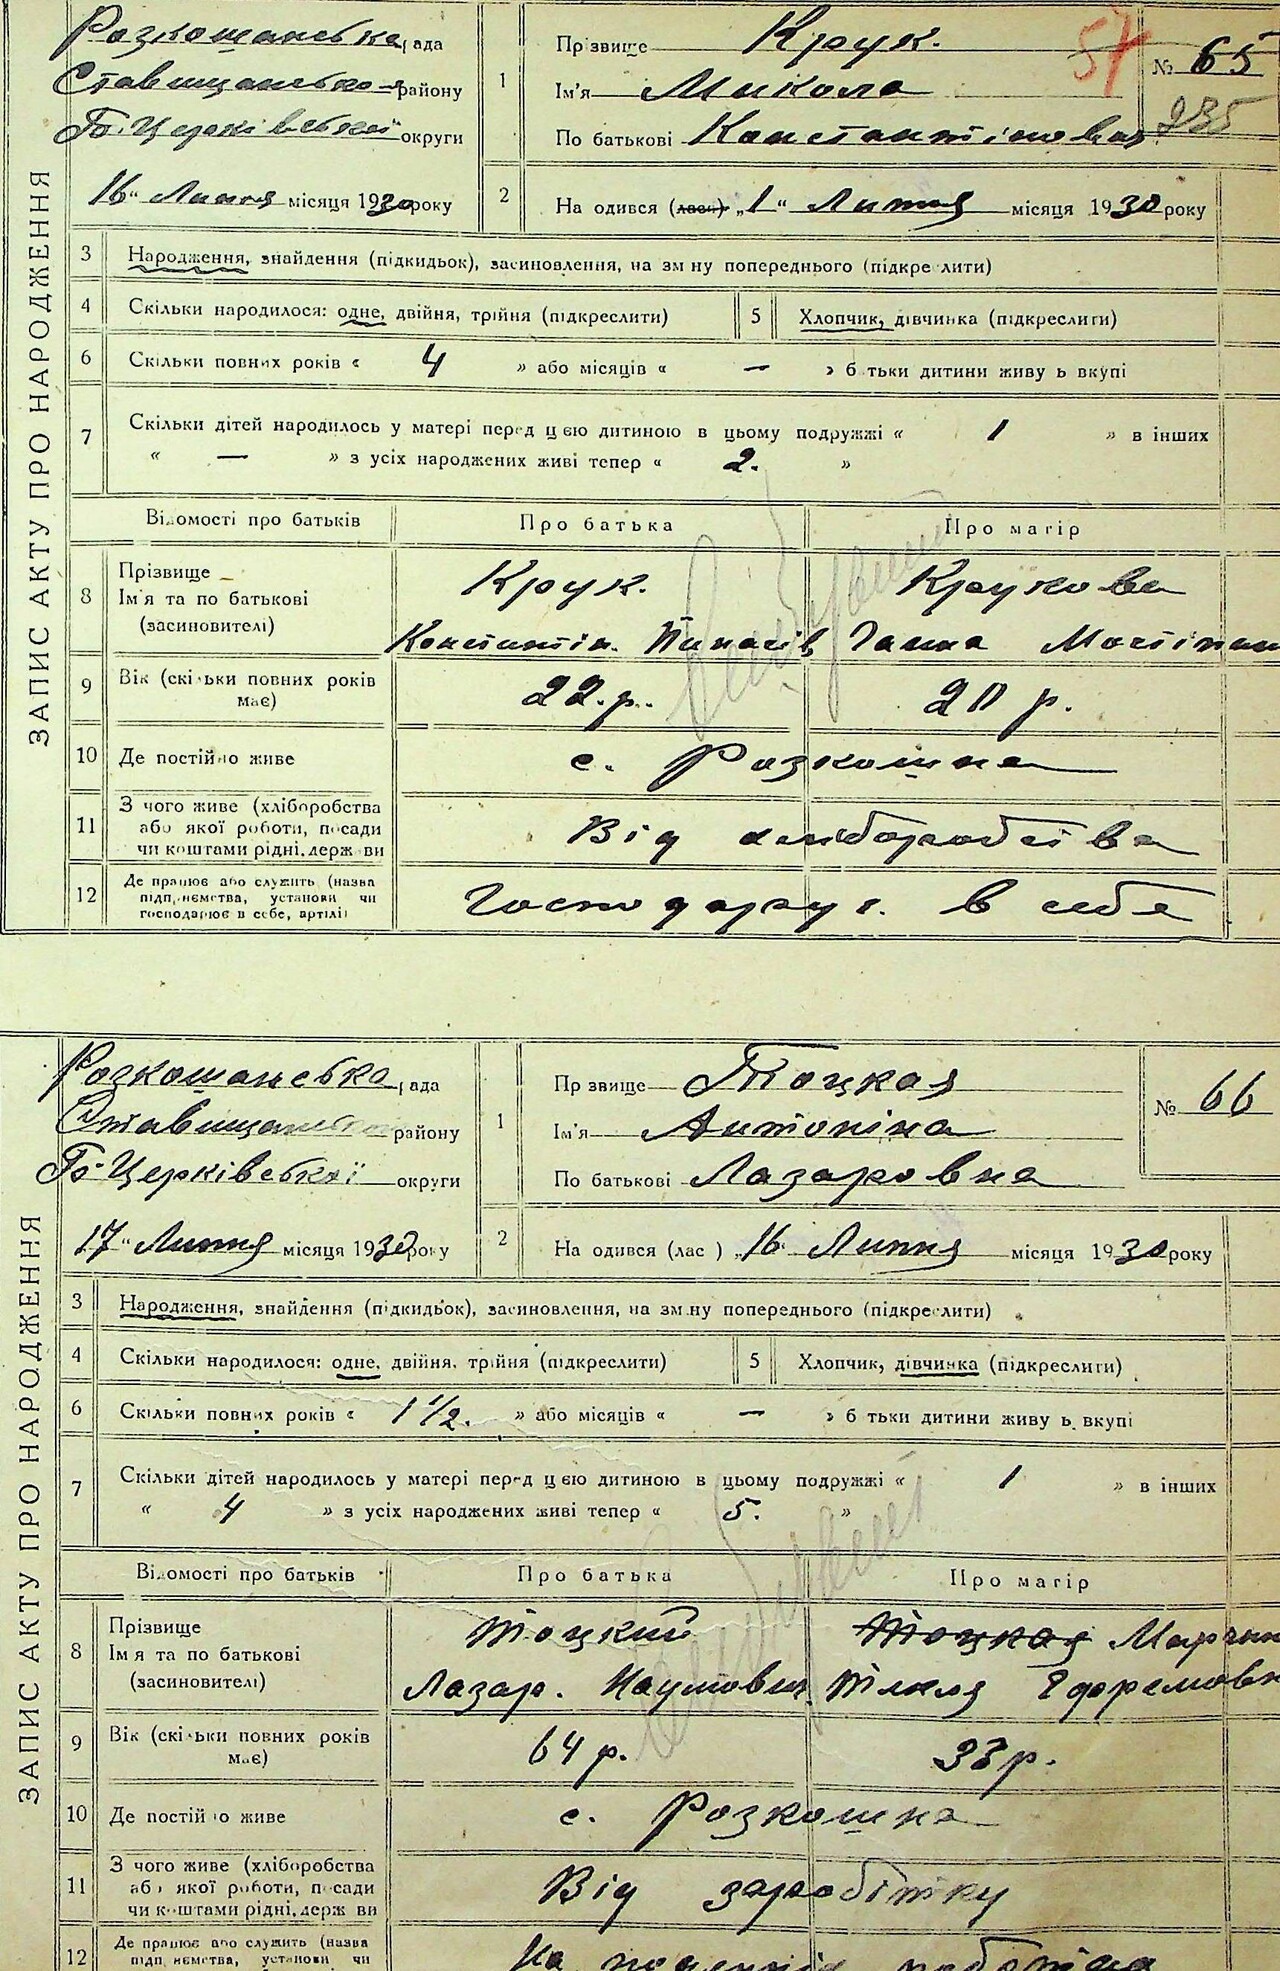 ЗАПИС АКТУ ПРО НАРОДЖЕННЯ
Розкошанська рада
Ставищансько району
Б-Церківської округи
16" Липня місяця 1930 року
1
Прізвище Крук.
Ім'я Микола
По батькові Константинович
57
№ 65
235
2
На одився (лась) „1" Липня місяця 1930 року
3 Народження, знайдення (підкидьок), засиновлення, на зм ну попереднього (підкре лити)
4 Скільки народилося: одне, двійня, трійня (підкреслити)
5 Хлопчик, дівчинка (підкреслити)
6 Скільки повних років « 4 » або місяців « — » б тьки дитини живу ь вкупі
7 Скільки дітей народилось у матері перед цією дитиною в цьому подружжі « 1 » в інших
« — » з усіх народжених живі тепер « 2. »
Відомості про батьків Про батька Про матір
8 Прізвище Крук. Крукова
Ім'я та по батькові
(засиновителі) Константін. Панасів Ганна
9 Вік (скільки повних років має) 22.р. 20 р.
10 Де постійно живе с. Розкошна
11 З чого живе (хліборобства
або якої роботи, посади
чи коштами рідні, держ ви Від хліборобства
12 Де працює або служить (назва
підп,иємства, установи чи
господарює в себе, артілі) Господарює. в себе
ЗАПИС АКТУ ПРО НАРОДЖЕННЯ
Розкошанська рада
Ставищансько району
Б-Церківської округи
17" Липня місяця 1930 року
1
Пр звище Тоцкая
Ім'я Антоніна
По батькові Лазаровна
№ 66
2
На одився (лас ) „16" Липня місяця 1930 року
3 Народження, знайдення (підкидьок), засиновлення, на зм ну попереднього (підкреслити)
4 Скільки народилося: одне, двійня, трійня (підкреслити)
5 Хлопчик, дівчинка (підкреслити)
6 Скільки повних років « 1 1/2. » або місяців « — » б тьки дитини живу ь вкупі
7 Скільки дітей народилось у матері перед цією дитиною в цьому подружжі « 1 » в інших
« 4 » з усіх народжених живі тепер « 5. »
Відомості про батьків Про батька Про матір
8 Прізвище Тоцкий Тоцкая
Ім'я та по батькові
(засиновителі) Лазар. Наумович. Тікля Ефремовн
9 Вік (скільки повних років має) 64 р. 33 р.
10 Де постійно живе с. Розкошна
11 З чого живе (хліборобства
або якої роботи, посади
чи коштами рідні, держ ви Від заробітку
12 Де працює або служить (назва
підп иємства, установи чи
На